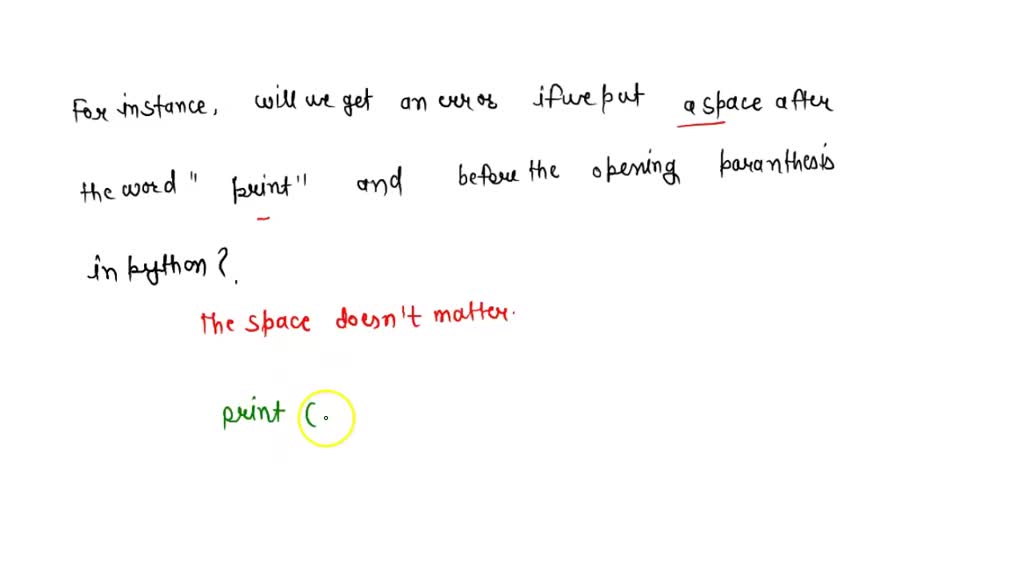 For instance, will we get an error if we put a space after
the word "print" and before the opening paranthesis
in python?
The space doesn't matter.
print (